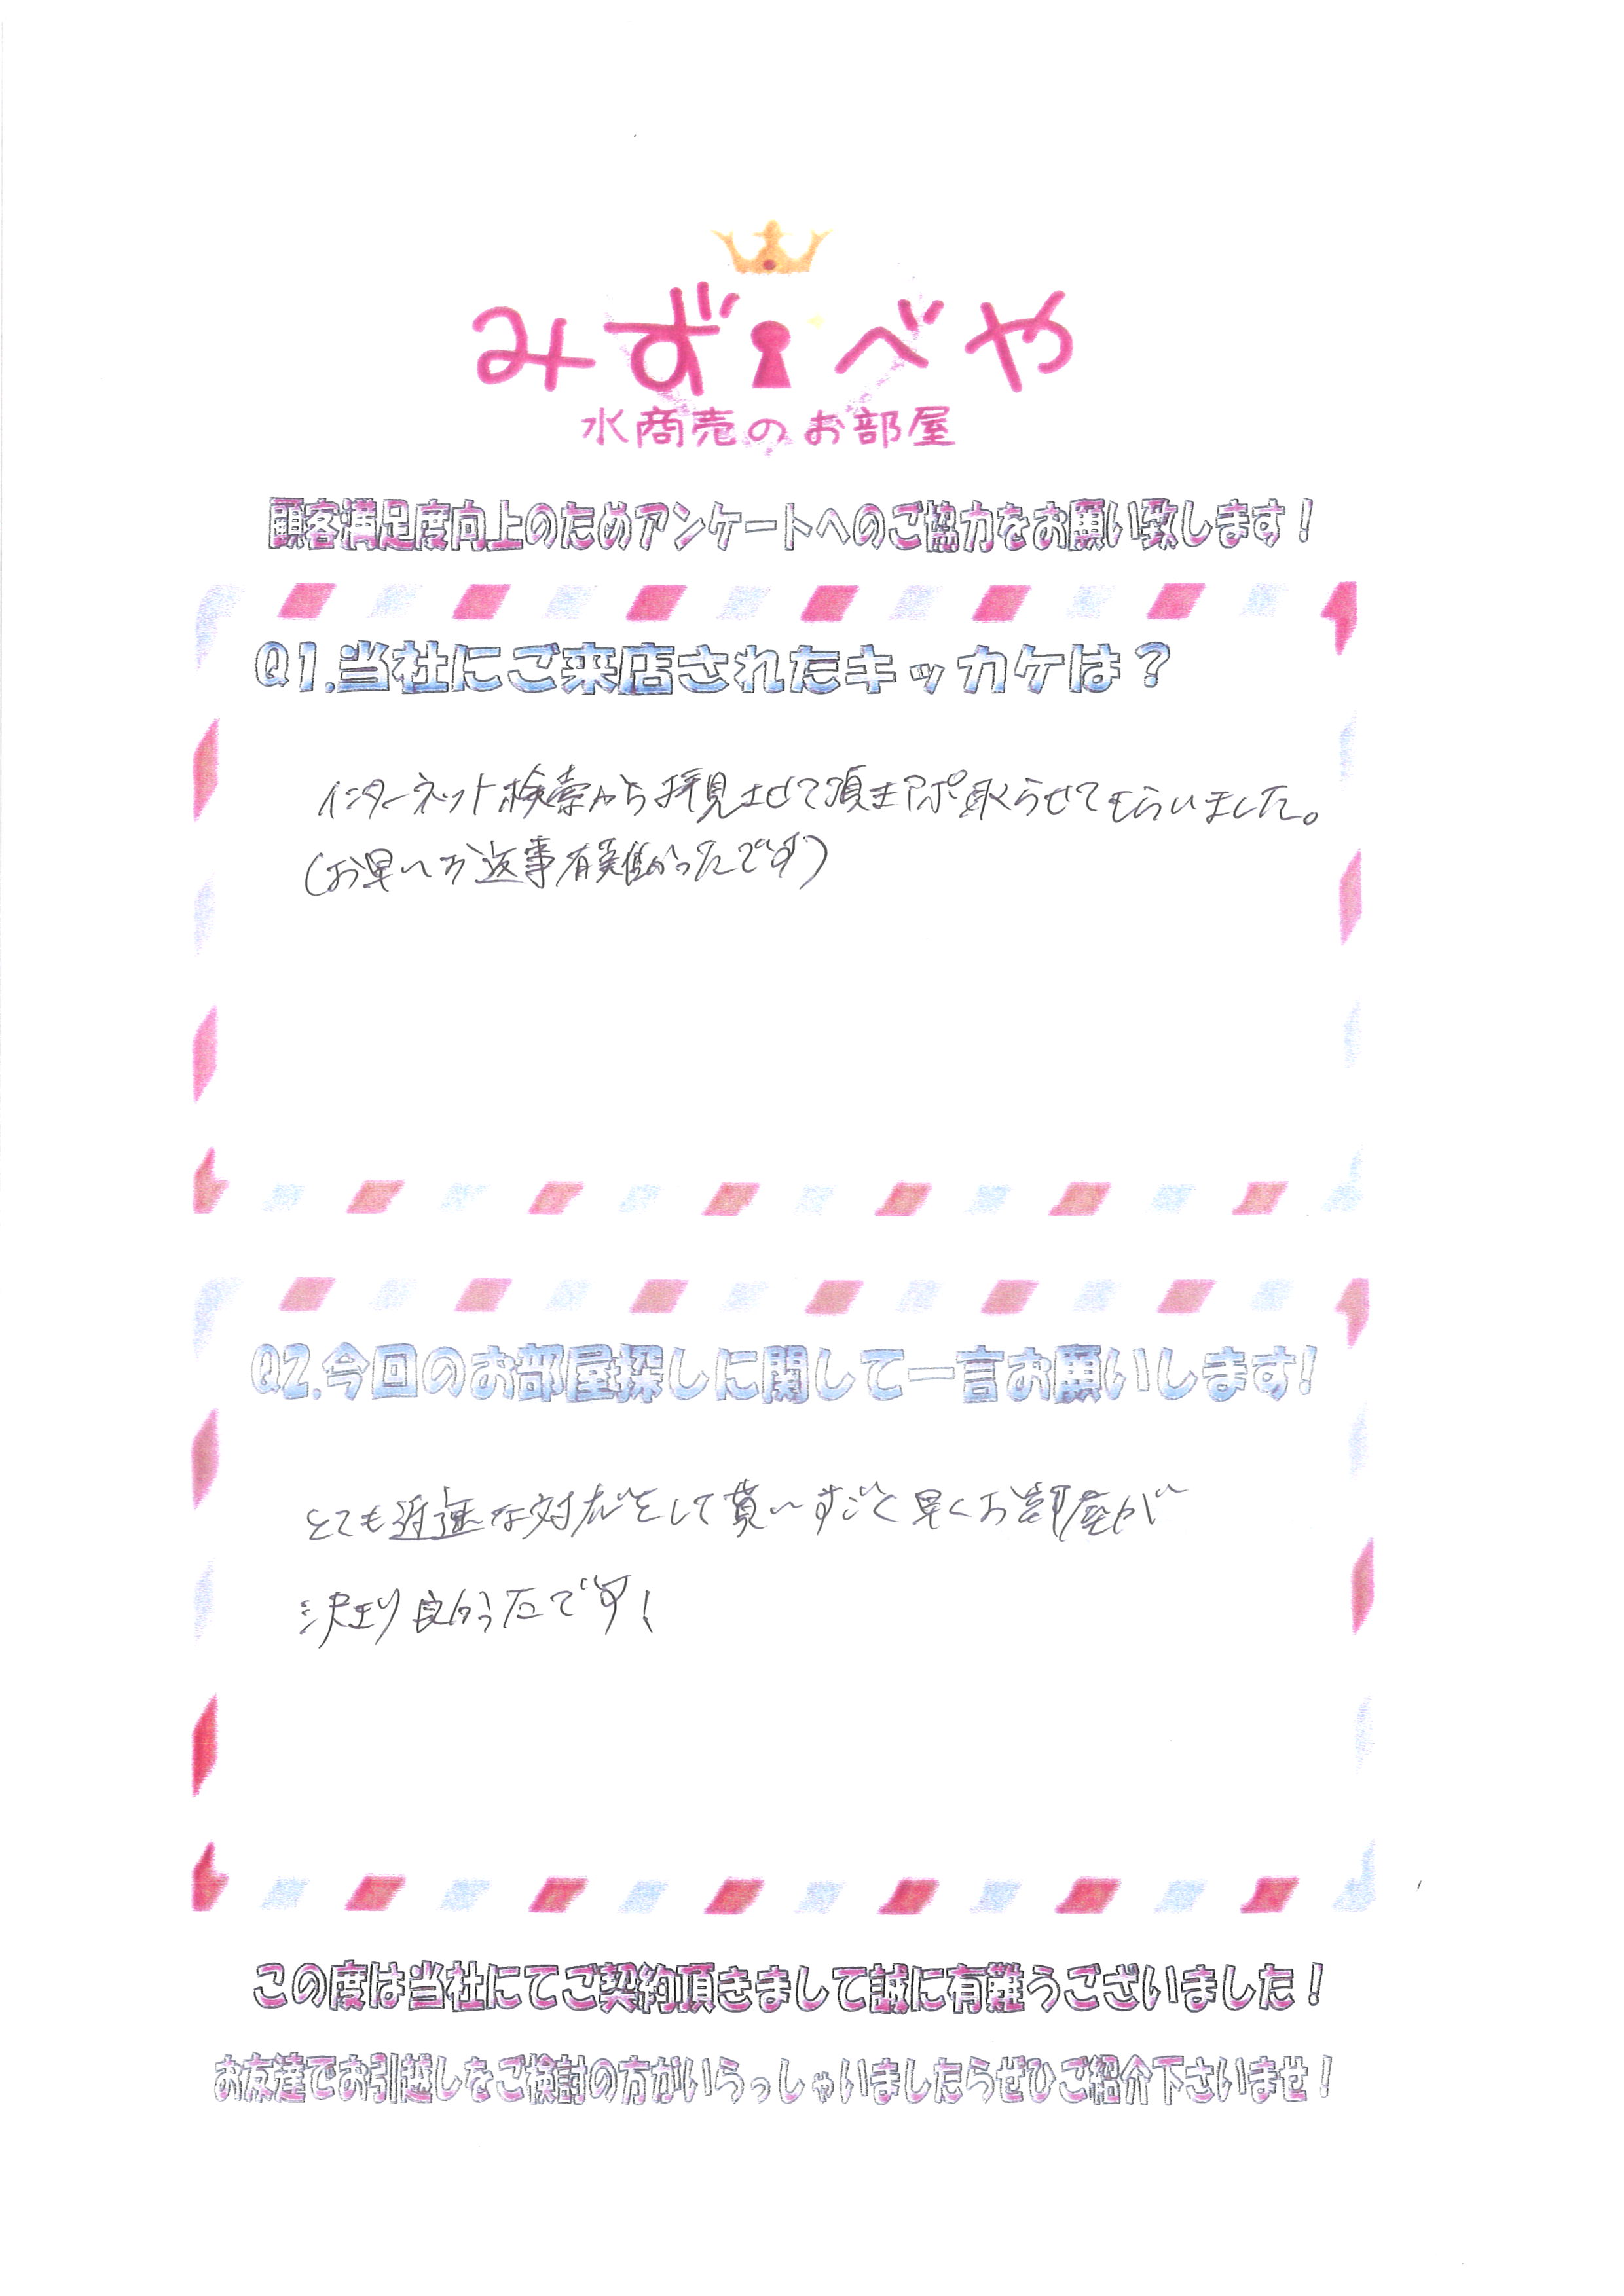 みず べや
水商売のお部屋
顧客満足度向上のためアンケートへのご協力をお願い致します！
Q1.当社にご来店されたキッカケは？
インターネット検索から拝見させて頂きアポ取らせてもらいました。
(お早いお返事有難かったです)
Q2.今回のお部屋探しに関して一言お願いします!
とても迅速な対応をして貰いすごく早くお部屋が
決まり良かったです!
この度は当社にてご契約頂きまして誠に有難うございました！
お友達でお引越しをご検討の方がいらっしゃいましたらぜひご紹介下さいませ！